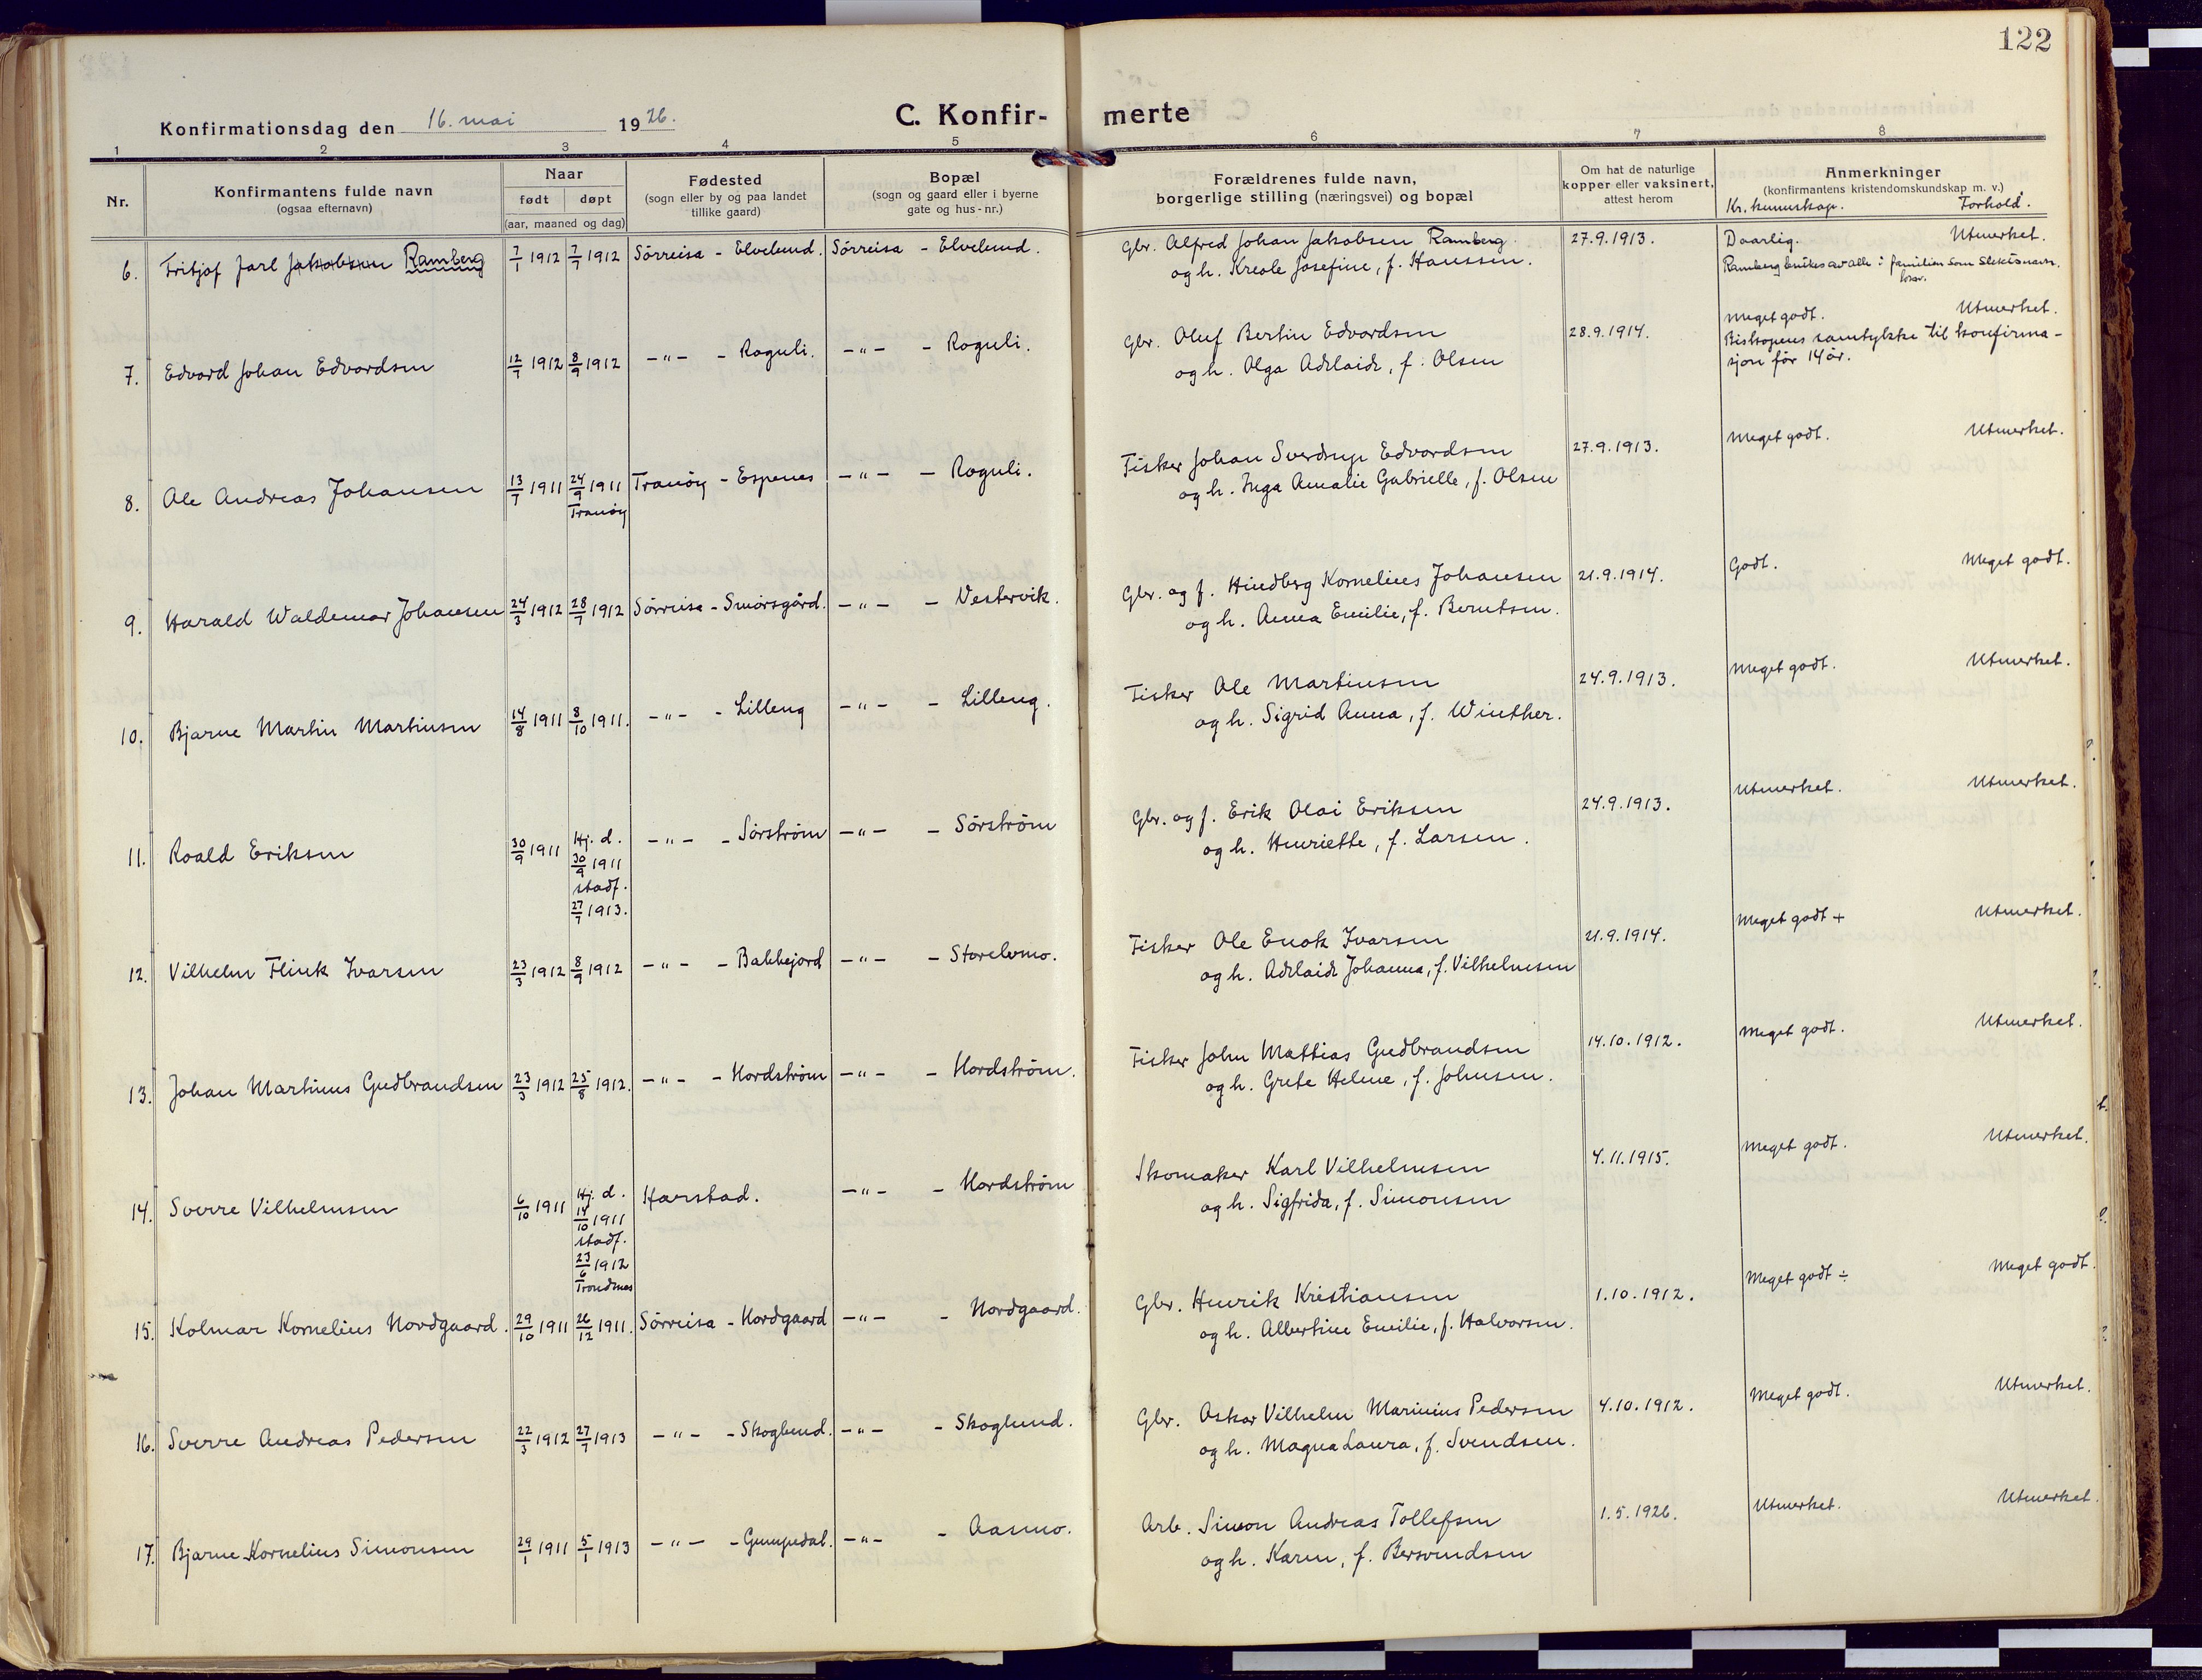 122
Konfirmationsdag den 16. mai 1926.
C. Konfir- merte
1 2 3 4 5 6 7 8
Nr.
Konfirmantens fulde navn
(ogsaa efternavn)
Naar
født døpt
(aar, maaned og dag)
Fødested
(sogn eller by og paa landet
tillike gaard)
Bopæl
(sogn og gaard eller i byerne
gate og hus-nr.)
Forældrenes fulde navn,
borgerlige stilling (næringsvei) og bopæl
Om hat de naturlige
kopper eller vaksinert,
attest herom
Anmerkninger
(konfirmantens kristendomskundskap m. v.)
Kr. kunnskap. Forhold.
6. Fritjof Jarl Jakobsen Ramberg 7/1 1912 7/7 1912 Sørreisa - Elvelund. Sørreisa - Elvelund.
Gbr. Alfred Johan Jakobsen Ramberg. 27.9.1913. Daarlig. Utmerket.
og h. Kreole Josefine, f. Hanssen. Ramberg brukes av alle i familien som slektsnavn.
7. Edvard Johan Edvardsen 12/7 1912 8/9 1912 -"- - Roguli. -"- - Roguli.
Gbr. Oluf Bertin Edvardsen 28.9.1914. Meget godt. Utmerket.
og h. Olga Adelaide, f. Olsen Biskopens samtykke til konfirma-
sjon før 14 år.
8. Ole Andreas Johansen 13/7 1911 24/9 1911 Tranøy - Espenes -"- - Roguli.
Tranøy
Fisker Johan Sverdrup Edvardsen 27.9.1913. Meget godt. Utmerket.
og h. Inga Amalie Gabrielle, f. Olsen
9. Harald Waldemar Johansen 24/3 1912 28/7 1912 Sørreisa - Smørsgård. -"- - Vestervik.
Gbr. og f. Hindberg Kornelius Johansen 21.9.1914. Godt. Meget godt.
og h. Anna Emilie, f. Berntsen.
10. Bjarne Martin Martinsen 14/8 1911 8/10 1911. -"- - Lilleng -"- - Lilleng.
Fisker Ole Martinsen 24.9.1913. Meget godt. Utmerket.
og h. Sigrid Anna, f. Winther.
11. Roald Eriksen 30/9 1911 Hj. d. -"- - Sørstrøm -"- - Sørstrøm
30/9 1911
stadf.
27/7 1913.
Gbr. og f. Erik Olai Eriksen 24.9.1913. Utmerket. Utmerket.
og h. Henriette, f. Larsen.
12. Vilhelm Flink Ivarsen 23/3 1912 8/9 1912 -"- - Bakkejord -"- - Storelvmo.
Fisker Ole Enok Ivarsen 21.9.1914. Meget godt + Utmerket.
og h. Adelaide Johanna, f. Vilhelmsen
13. Johan Martinus Gudbrandsen 23/3 1912 25/8 1912. -"- - Nordstrøm -"- - Nordstrøm.
Fisker John Mattias Gudbrandsen 14.10.1912. Meget godt. Utmerket.
og h. Grete Helene, f. Johnsen.
14. Sverre Vilhelmsen 6/10 1911 Hj. d. Harstad. -"- - Nordstrøm
14/10 1911
stadf.
23/6 1912
Trondenes
Skomaker Karl Vilhelmsen 4.11.1915. Meget godt. Utmerket.
og h. Sigfrida, f. Simonsen
15. Kolmar Kornelius Nordgaard. 29/10 1911 26/12 1911. Sørreisa - Nordgaard -"- - Nordgaard.
Gbr. Henrik Kristiansen 1.10.1912. Meget godt ÷ Meget godt.
og h. Albertine Emilie, f. Halvorsen.
16. Sverre Andreas Pedersen 22/3 1912 27/7 1913 -"- - Skoglund. -"- - Skoglund.
Gbr. Oskar Vilhelm Marinius Pedersen 4.10.1912. Meget godt. Utmerket.
og h. Magna Laura, f. Svendsen.
17. Bjarne Kornelius Simonsen 29/1 1911 5/1 1913 -"- - Gumpedal. -"- - Aasmo.
Arb. Simon Andreas Tollefsen 1.5.1926. Utmerket. Utmerket.
og h. Karen, f. Bersvendsen